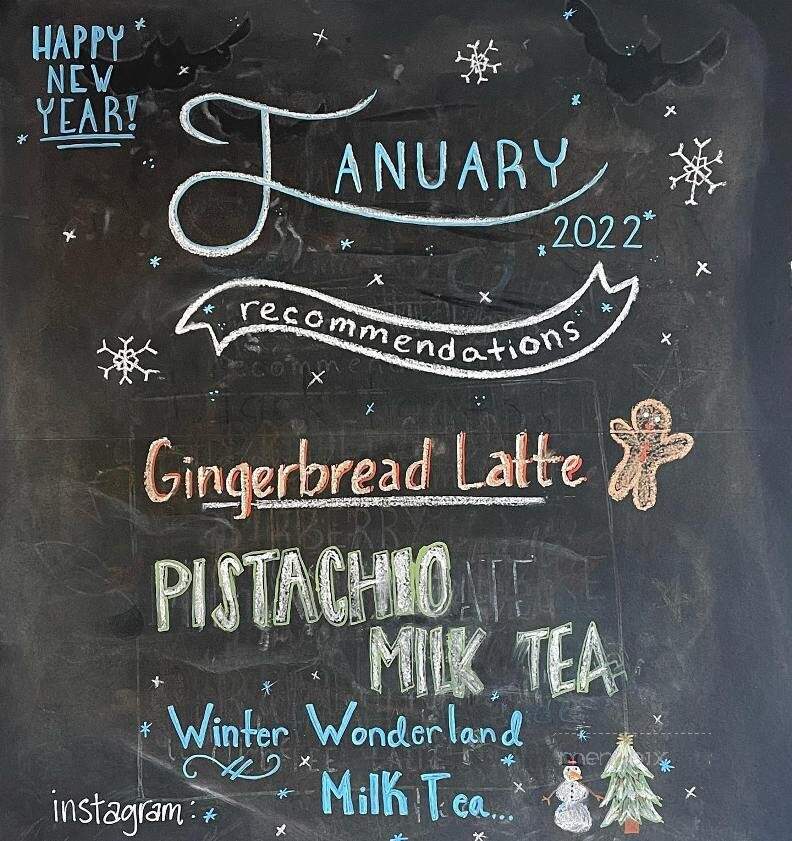 HAPPY
NEW
YEAR!
JANUARY
2022
recommendations
Gingerbread Latte
PISTACHIO
MILK TEA
Winter Wonderland
Milk Tea...
instagram: